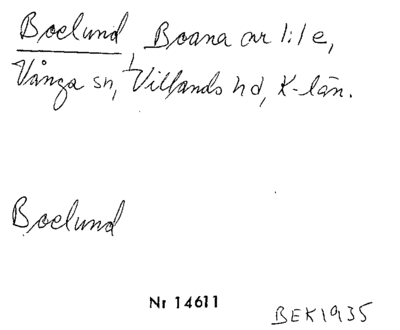 Boelund, Boana av 1:1 e,
Vånga sn, Villands hd, K-län.
Boelund
Nr 14611
BEK1935